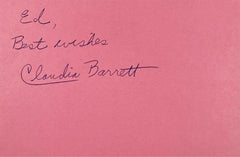 Ed,
Best wishes
Claudia Barrett